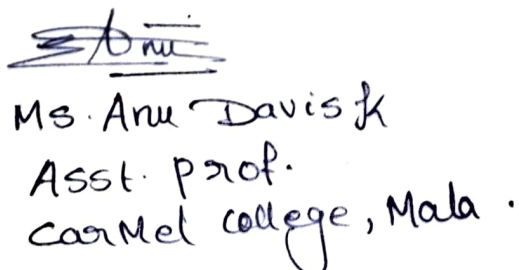 Anu
Ms. Anu Davis K
Asst. prof.
Carmel college, Mala.